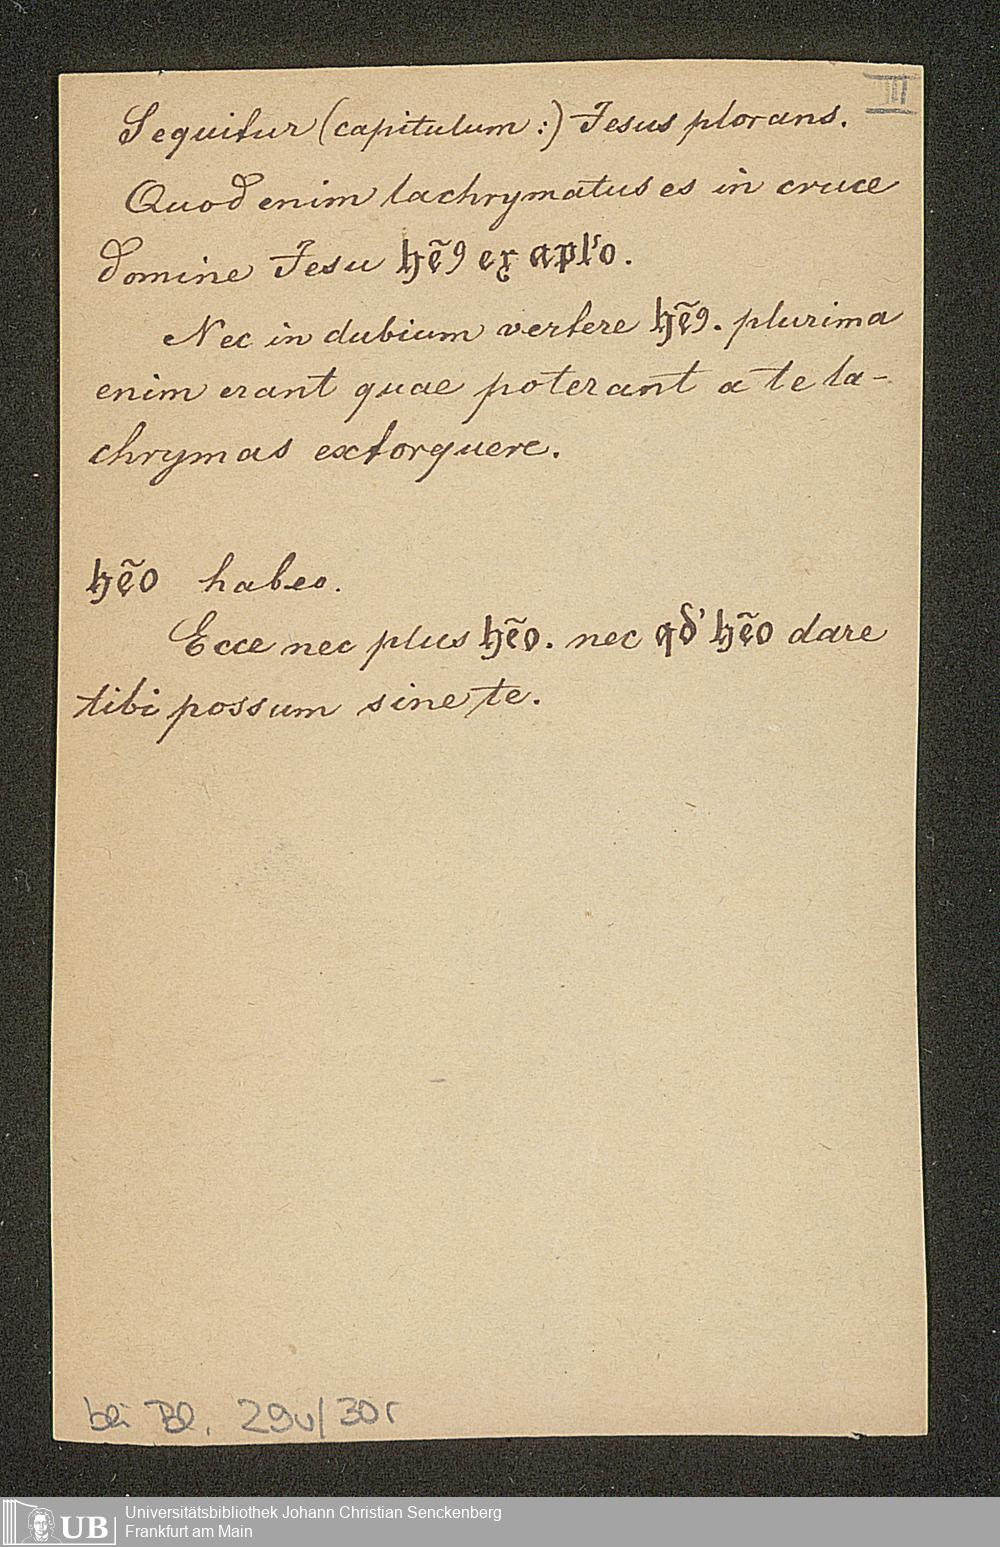 III
Sequitur (capitulum:) Jesus plorans.
Quod enim lachrymatus es in cruce
domine Jesu hẽꝯ ex apl'o.
Nec in dubium vertere hẽꝯ. plurima
enim erant quae poterant a te la-
chrymas extorquere.
hẽo habeo.
Ecce nec plus hẽo. nec qđ' hẽo dare
tibi possum sine te.
bei Bl. 29v/30r
UB
Universitätsbibliothek Johann Christian Senckenberg
Frankfurt am Main